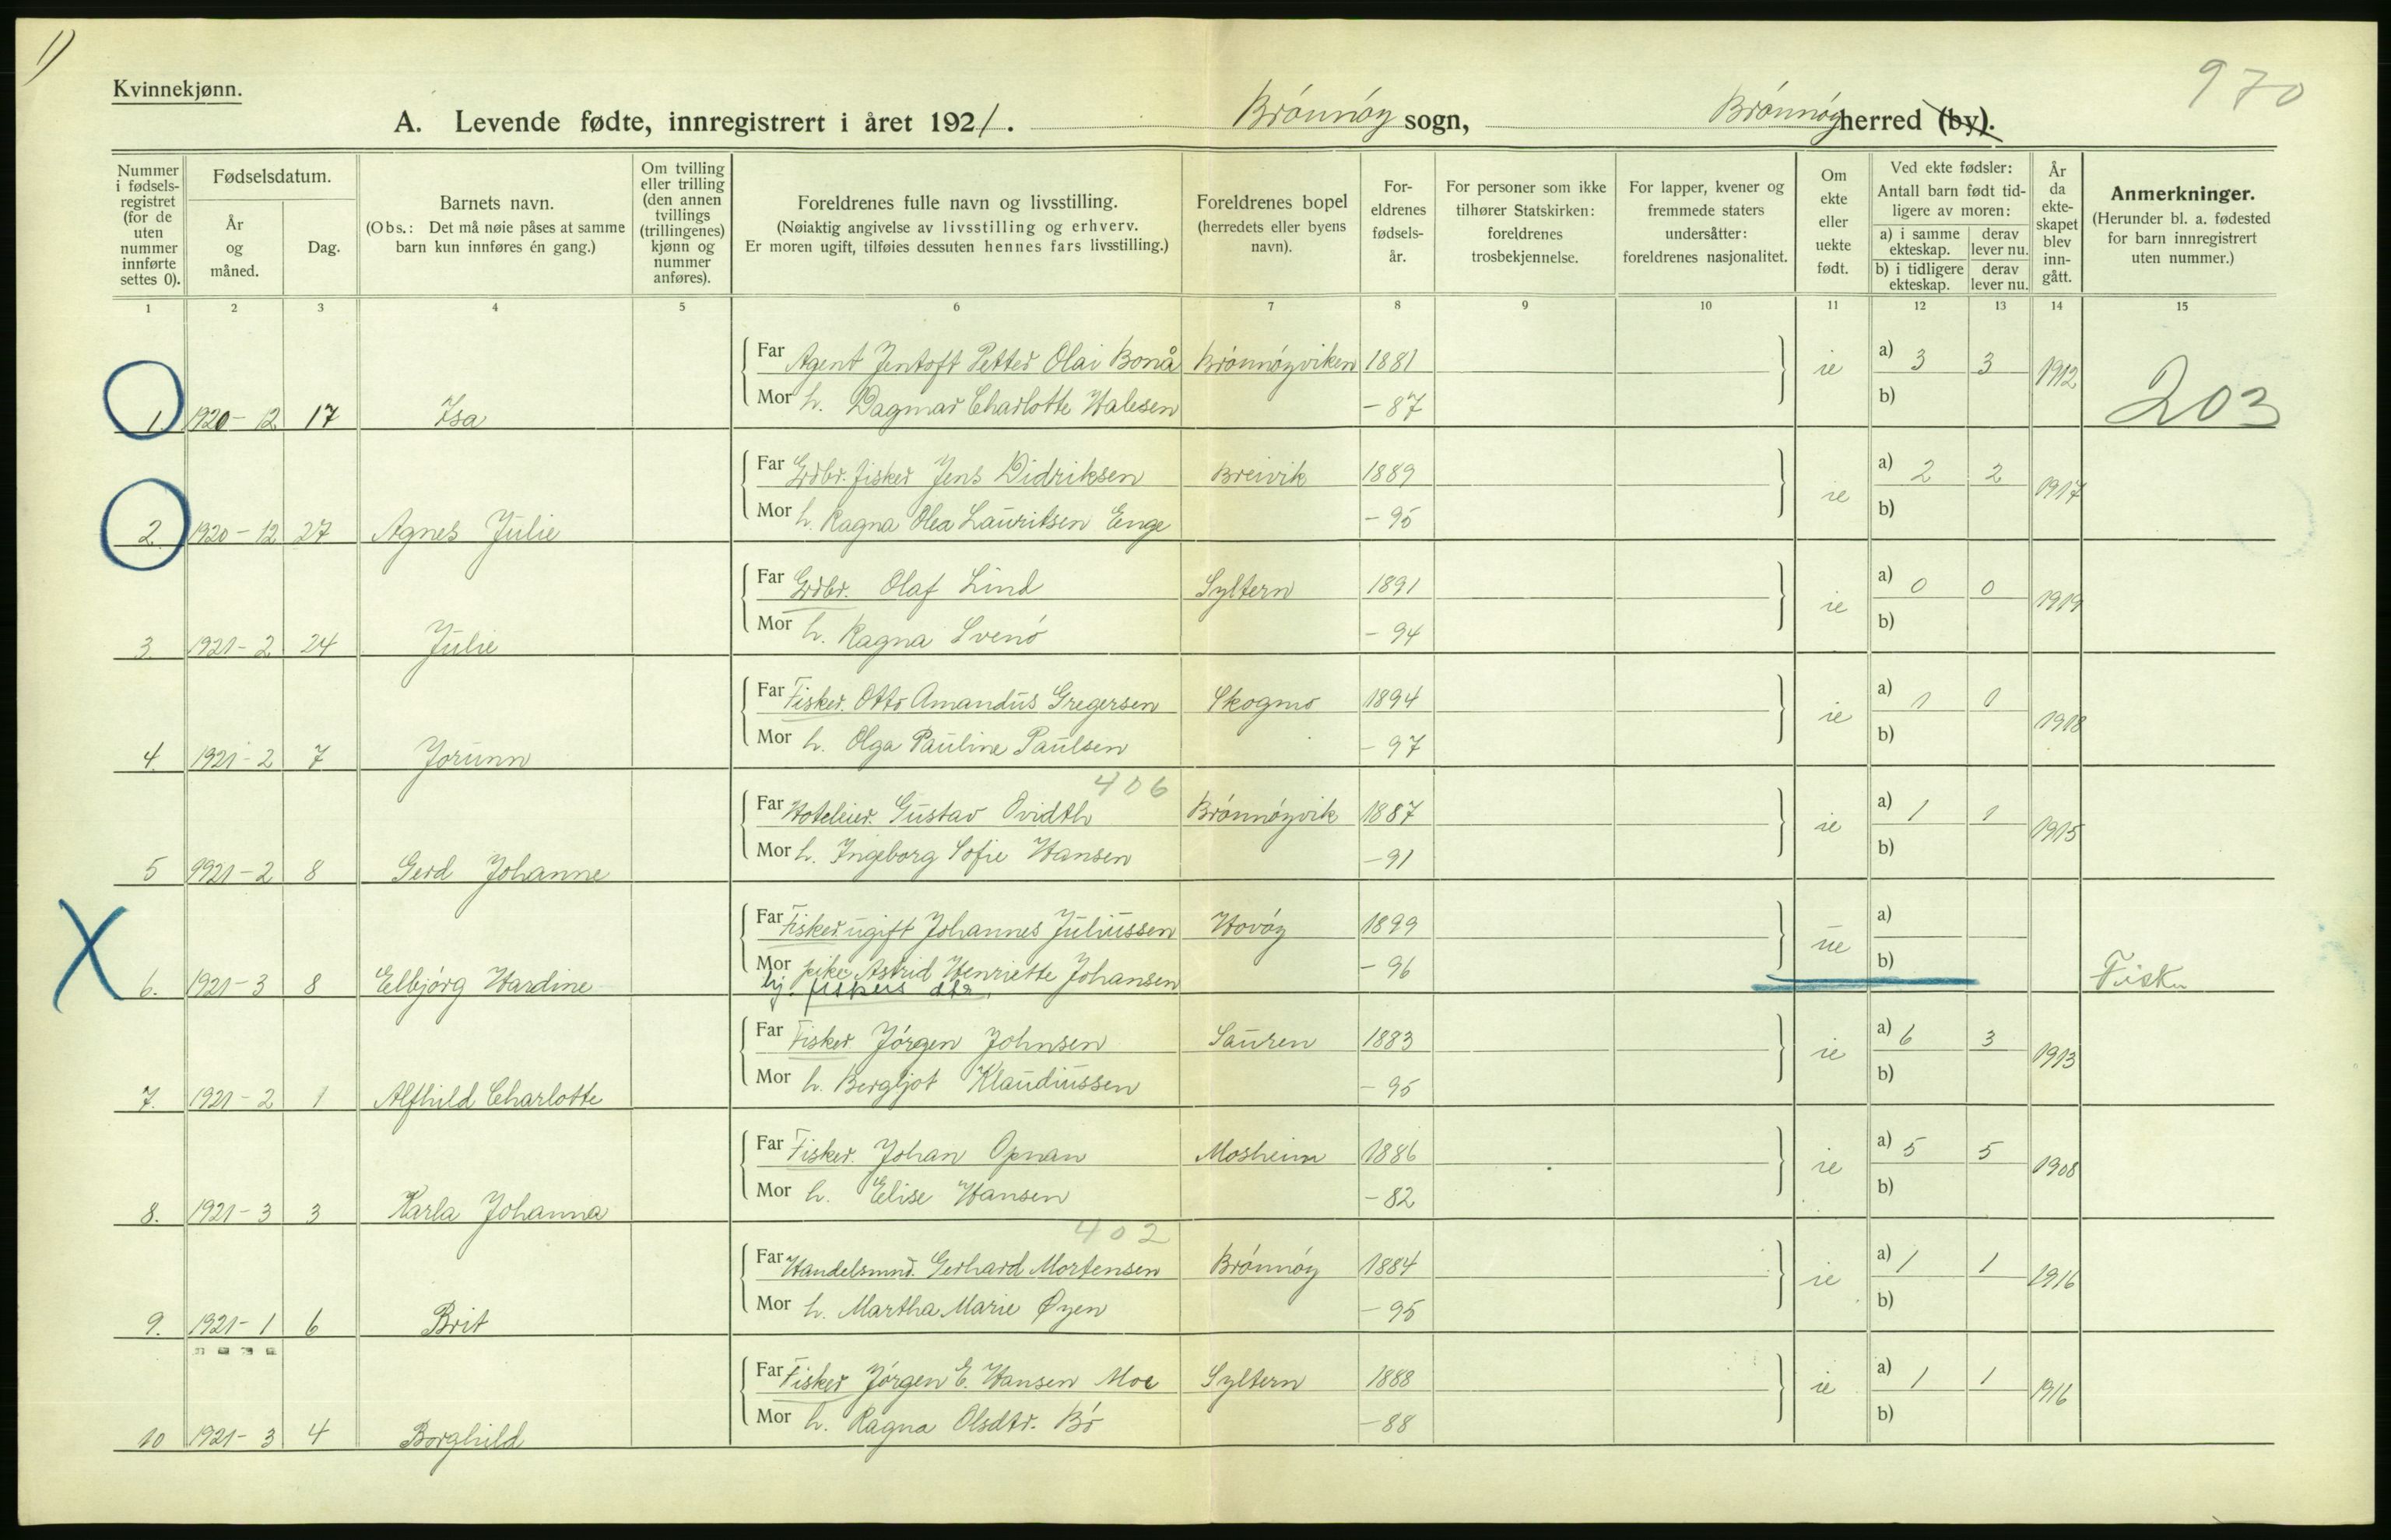 1)
Kvinnekjønn.
970
A. Levende fødte, innregistrert i året 1921. Brønnøy sogn, Brønnøy herred (by).
Nummer i fødselsregistret (for de uten nummer innførte settes 0).
Fødselsdatum.
År og måned.
Dag.
Barnets navn.
(Obs.: Det må nøie påses at samme barn kun innføres én gang.)
Om tvilling eller trilling (den annen tvillings (trillingenes) kjønn og nummer anføres).
Foreldrenes fulle navn og livsstilling.
(Nøiaktig angivelse av livsstilling og erhverv.
Er moren ugift, tilføies dessuten hennes fars livsstilling.)
Foreldrenes bopel
(herredets eller byens navn).
Foreldrenes fødselsår.
For personer som ikke tilhører Statskirken: foreldrenes trosbekjennelse.
For lapper, kvener og fremmede staters undersåtter: foreldrenes nasjonalitet.
Om ekte eller uekte født.
Ved ekte fødsler:
Antall barn født tidligere av moren:
a) i samme ekteskap.
derav lever nu.
b) i tidligere ekteskap.
derav lever nu.
År da ekteskapet blev inngått.
Anmerkninger.
(Herunder bl. a. fødested for barn innregistrert uten nummer.)
1 2 3 4 5 6 7 8 9 10 11 12 13 14 15
Far Agent Jentoft Petter Olai Bonå Brønnøyviken 1881 ie a) 3 3 1912
Mor h. Dagmar Charlotte Halesen - 87 b)
1. 1920 - 12 17 Isa 203
Far Grdbr. fisker Jens Didriksen Breivik 1889 ie a) 2 2 1917
Mor h. Ragna Olea Lauritsen Enge - 95 b)
2. 1920 - 12 27 Agnes Julie
Far Grdbr. Olaf Lind Syltern 1891 ie a) 0 0 1919
Mor h. Ragna Svenø - 94 b)
3. 1921 - 2 24 Julie
Far Fisker. Otto Amandus Gregersen Skogmo 1894 ie a) 1 0 1918
Mor h. Olga Pauline Paulsen - 97 b)
4. 1921 - 2 7 Jorunn
406
Far Hoteleier. Gustav Qvidth Brønnøyvik 1887 ie a) 1 1 1915
Mor h. Ingeborg Sofie Hansen - 91 b)
5 1921 - 2 8 Gerd Johanne
Far Fisker ugift Johannes Juliussen Hovøy 1899 ue a)
Mor pike Astrid Henriette Johansen - 96 b)
hj. fiskers dtr.
X 6. 1921 - 3 8 Elbjørg Hardine Fisk.
Far Fisker Jørgen Johnsen Sauren 1883 ie a) 6 3 1913
Mor h. Bergljot Klaudiussen - 95 b)
7. 1921 - 2 1 Alfhild Charlotte
Far Fisker. Johan Opnan Mosheim 1886 ie a) 5 5 1908
Mor h. Elise Hansen - 82 b)
8. 1921 - 3 3 Karla Johanna
402
Far Handelsmnd. Gerhard Mortensen Brønnøy 1884 ie a) 1 1 1916
Mor h. Martha Marie Øyen - 95 b)
9. 1921 - 1 6 Brit
Far Fisker Jørgen E. Hansen Moe Syltern 1888 ie a) 1 1 1916
Mor h. Ragna Olsdtr. Bø - 88 b)
10 1921 - 3 4 Borghild